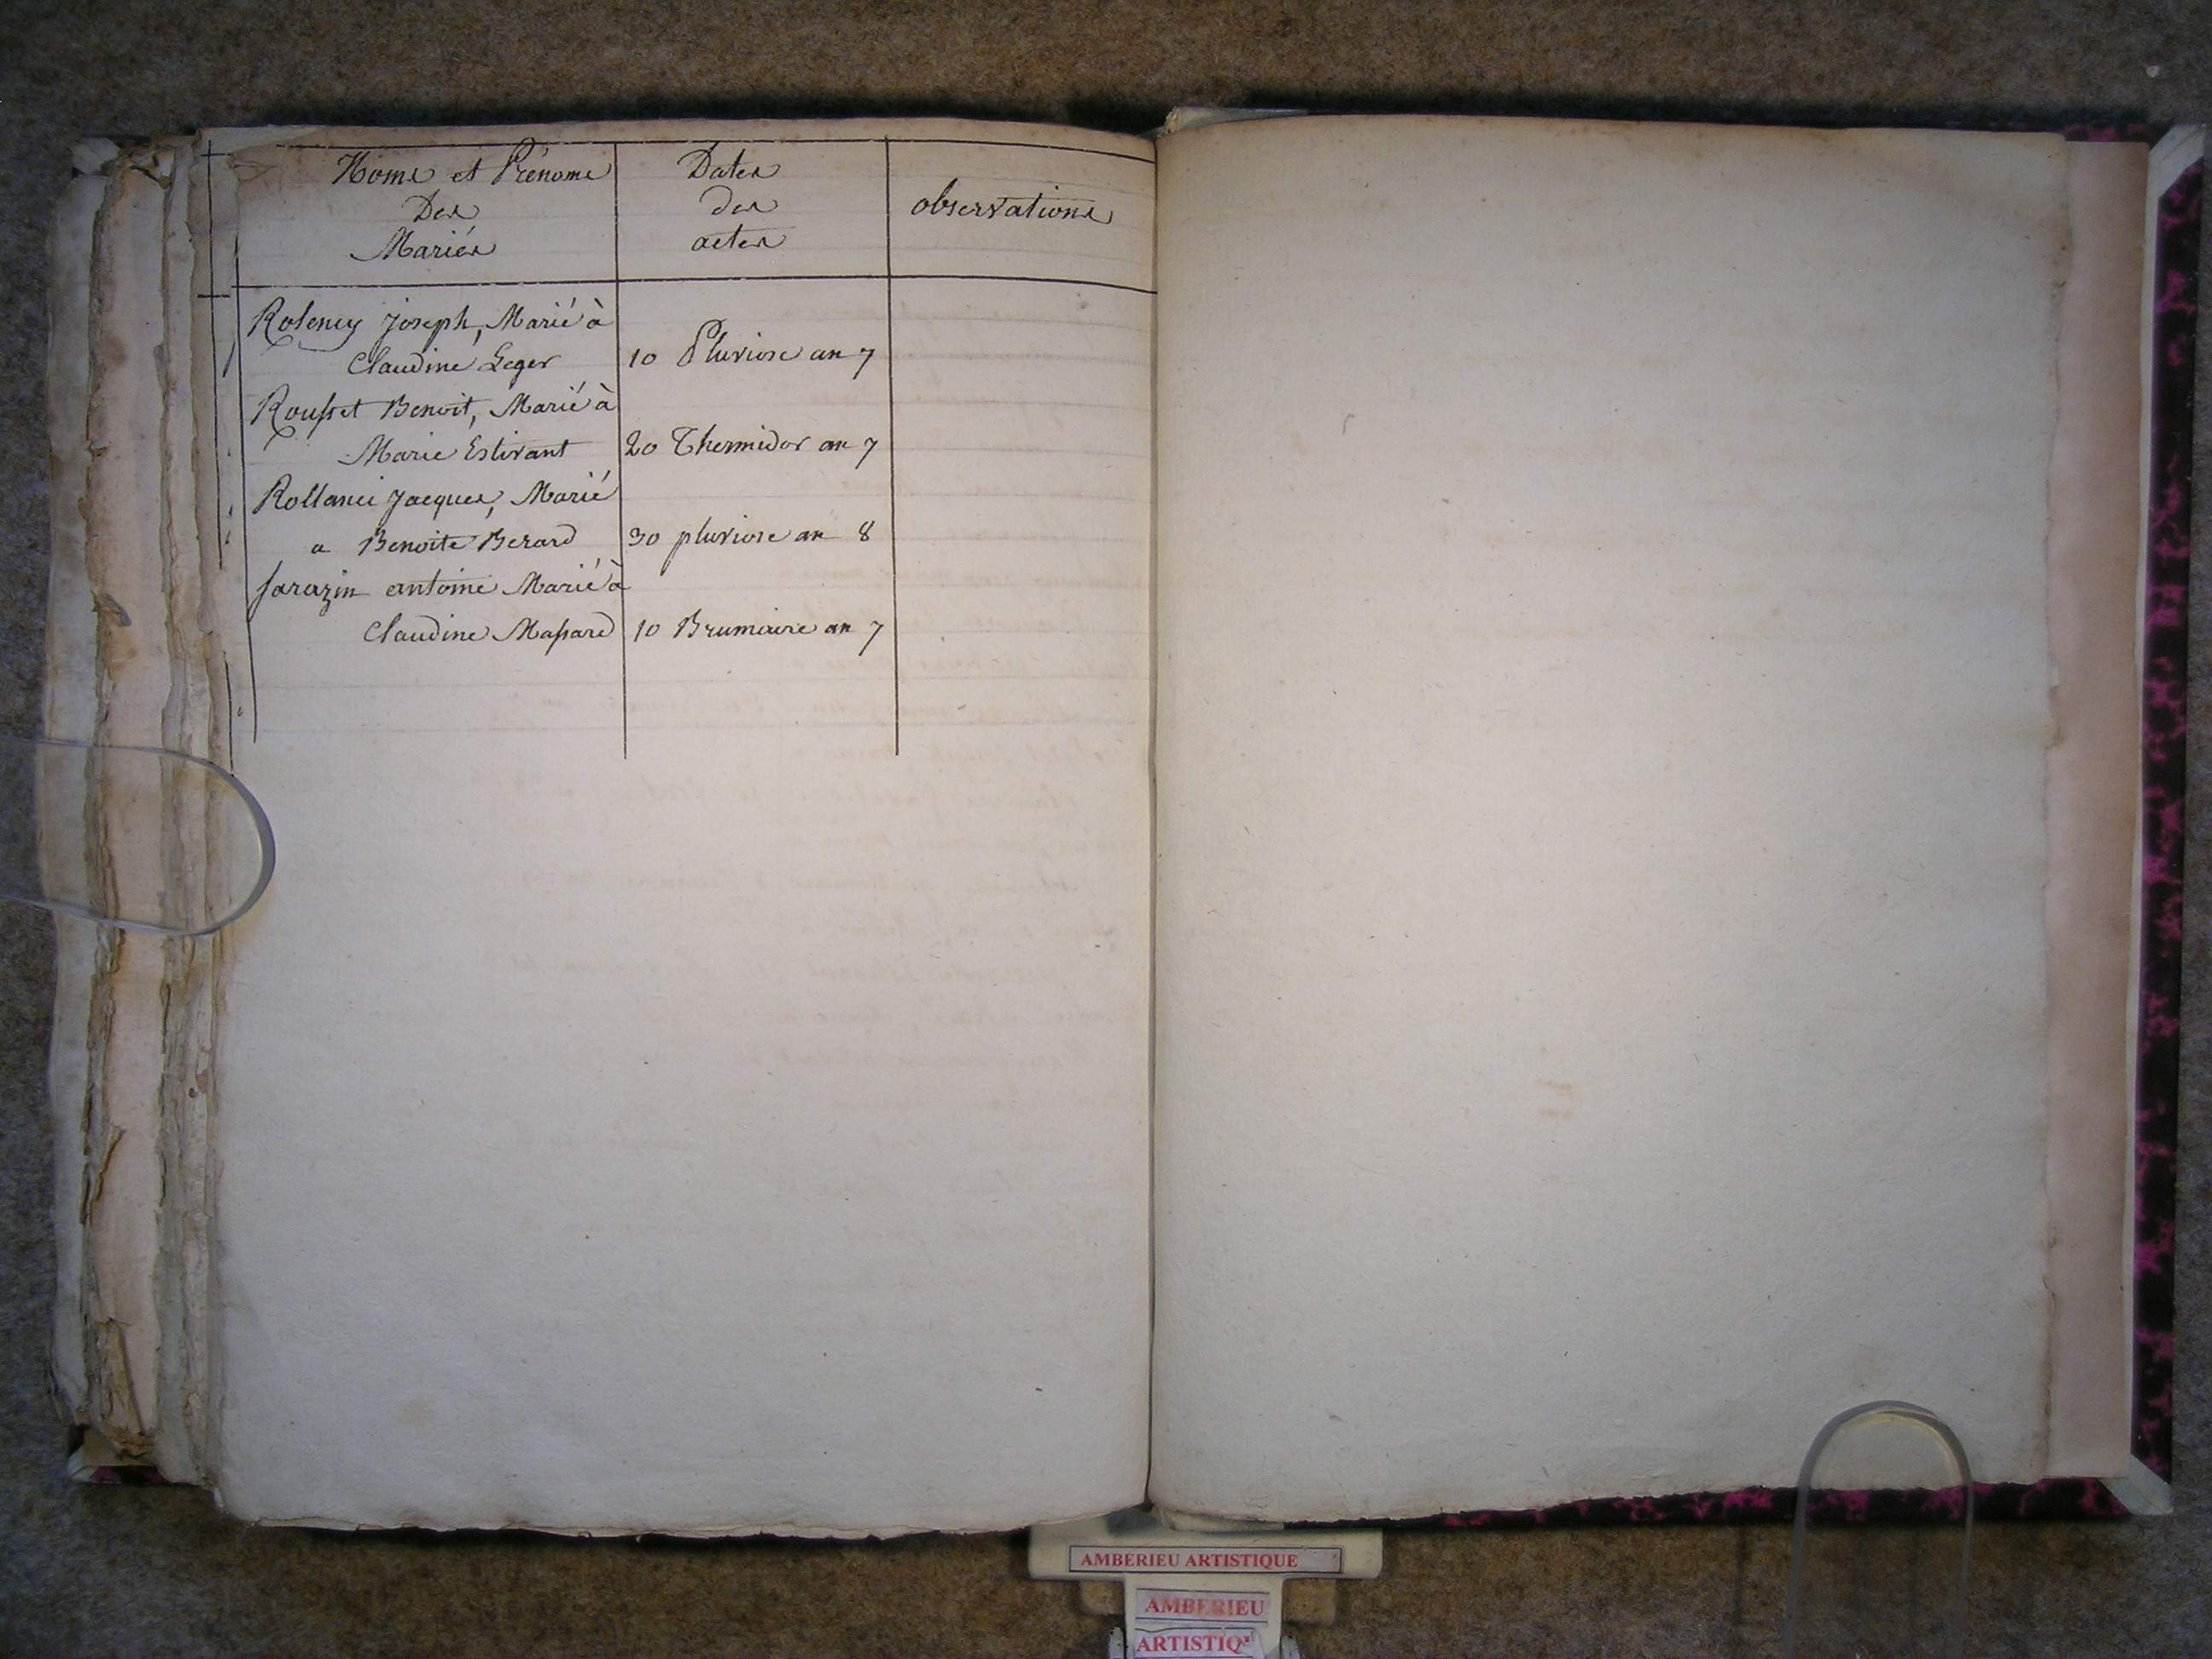 Noms et Prénoms
Des
Mariés
Dates
des
actes
observations
Roleney Joseph, Marié à
Claudine Leger 10 Pluviose an 7
Rousset Benoit, Marié à
Marie Estivant 20 Thermidor an 7
Rollanci Jacques, Marié
a Benoite Berard 30 pluviose an 8
Sarazin antoine Marié à
Claudine Massard 10 Brumaire an 7
AMBERIEU ARTISTIQUE
AMBERIEU
ARTISTIQ